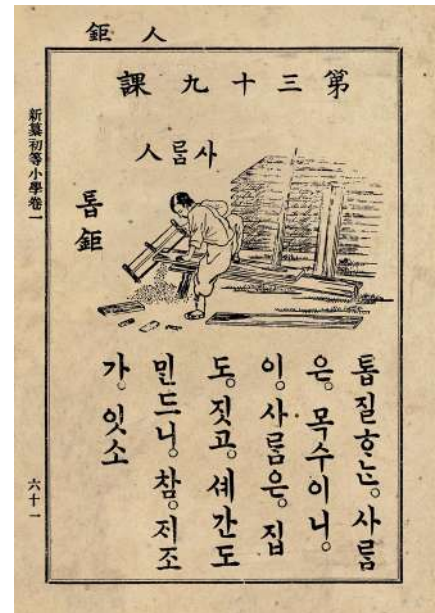 人 鉅
第三十九課
사ᄅᆞᆷ 人
톱 鉅
톱질ᄒᆞᄂᆞᆫ。사ᄅᆞᆷ
은。목수이니。
이。사ᄅᆞᆷ은。집
도。짓고。셰간도
ᄆᆡᆫ드니。참。ᄌᆡ조
가。잇소
新纂初等小學卷一
六十一